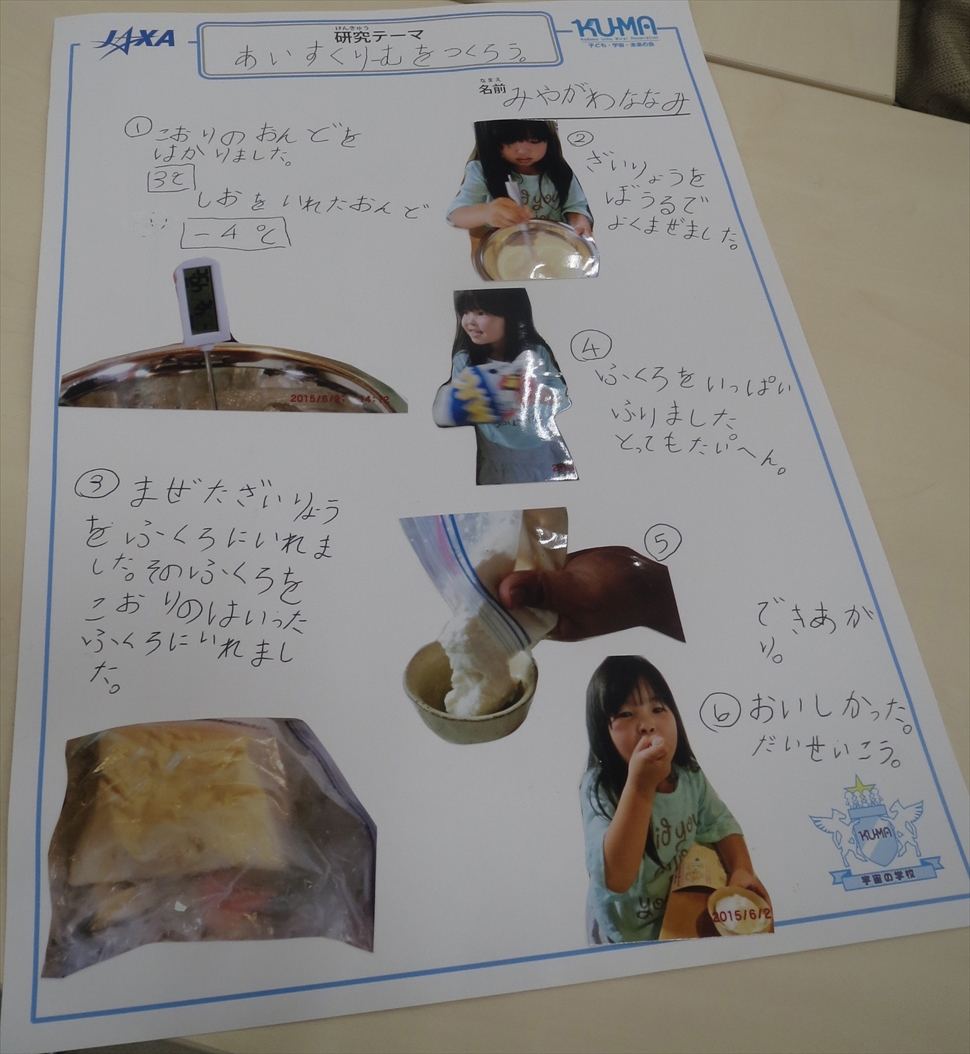 JAXA
けんきゅう
研究テーマ
あいすくりーむをつくろう。
KU-MA
子ども・宇宙・未来の会
なまえ
名前 みやがわななみ
① こおりのおんどを
はかりました。
3℃
しおをいれたおんど
-4℃
② ざいりょうを
ぼうるで
よくまぜました。
2015/6/2
14:12
④
ふくろをいっぱい
ふりました
とってもたいへん。
③ まぜたざいりょう
をふくろにいれま
した。そのふくろを
こおりのはいった
ふくろにいれまし
た。
⑤
できあが
り。
⑥ おいしかった。
だいせいこう。
2015/6/2
KU-MA
宇宙の学校